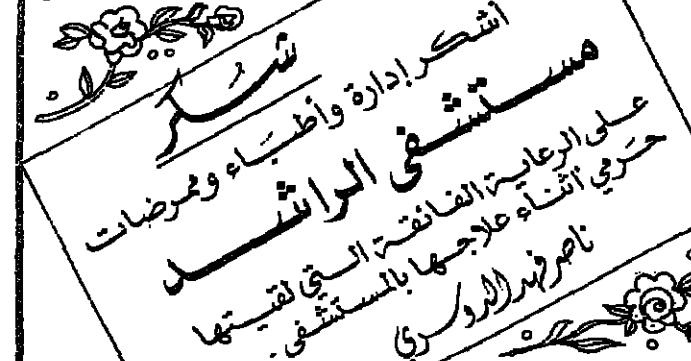 شُكر
أشكر إدارة وأطباء وممرضات
مستشفى الراشد
على الرعاية الفائقة التي لقيتها
حرمي أثناء علاجها بالمستشفى.
ناصر فهد الدوسري